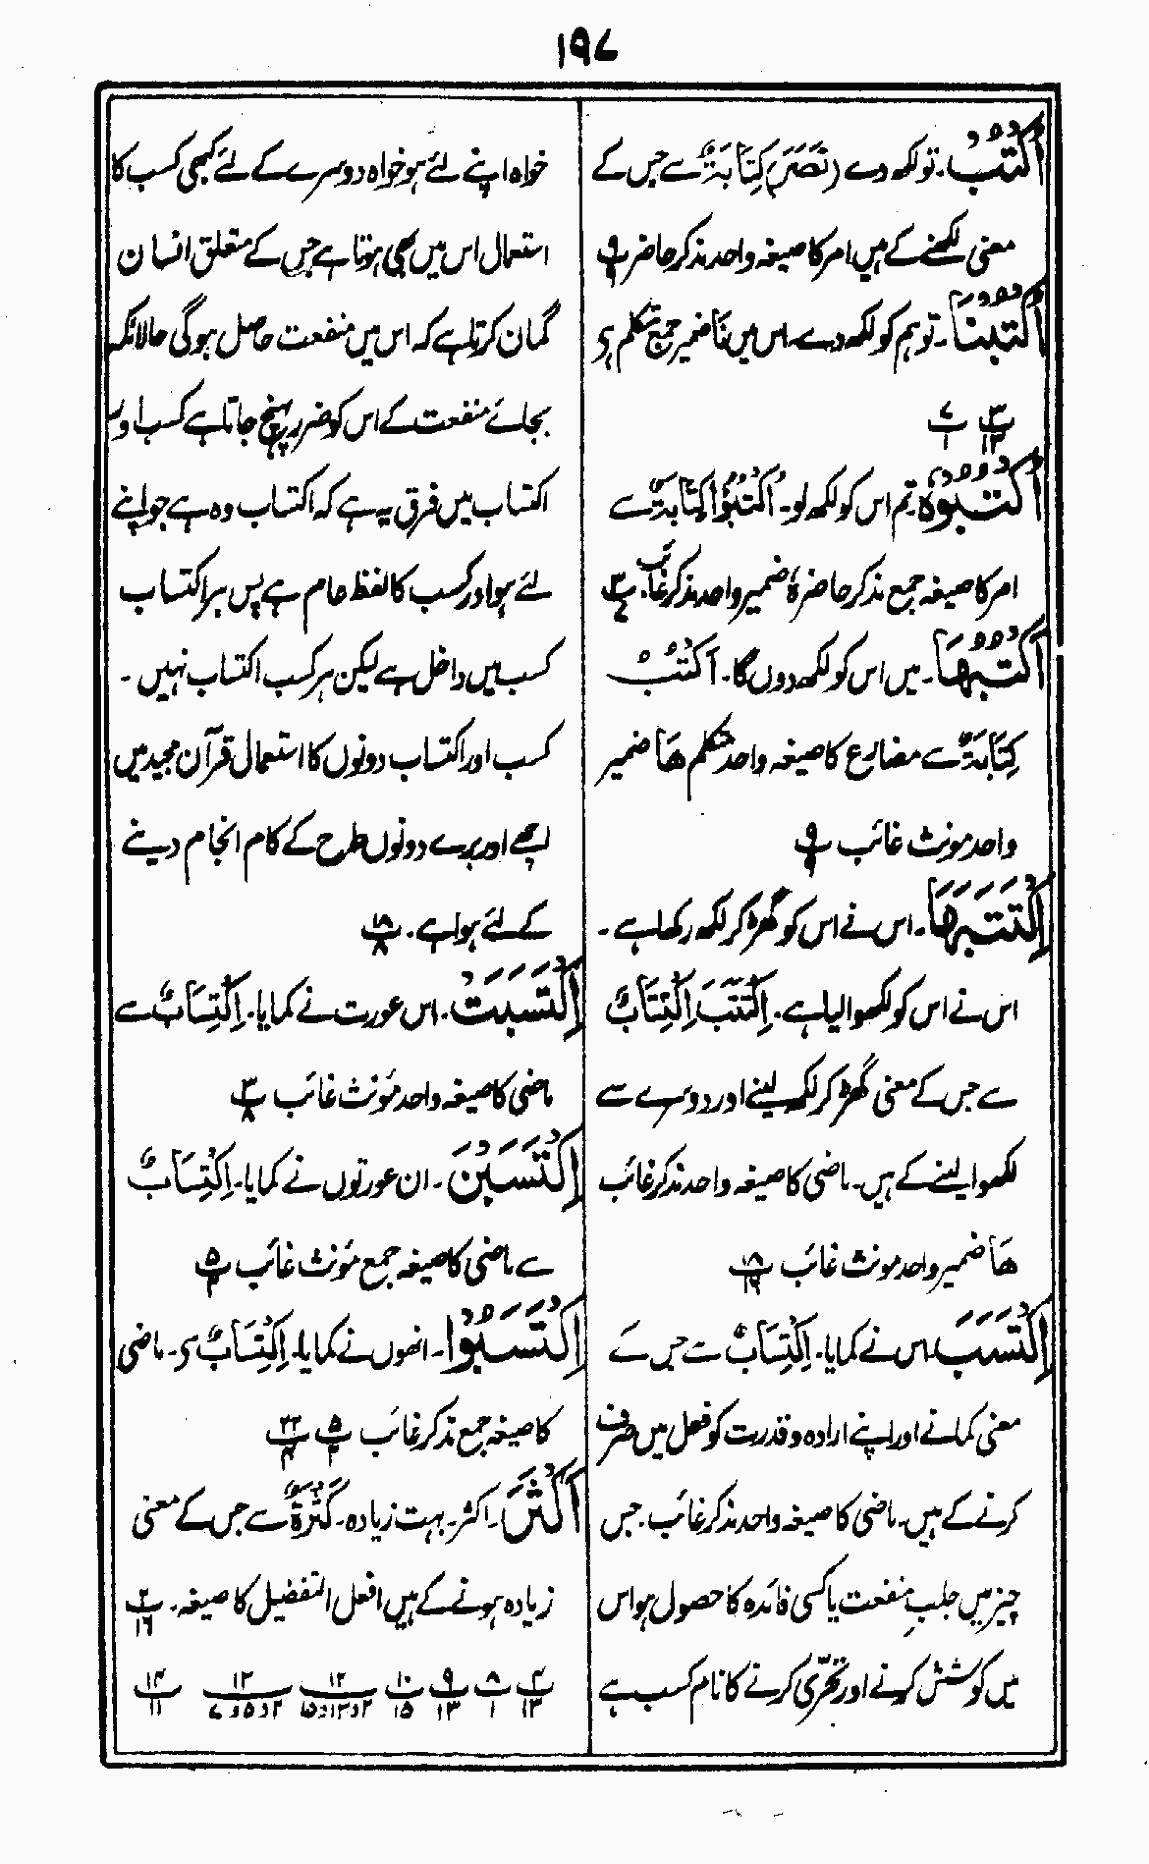 ۱۹۷
اُكْتُبْ۔ تو لکھ دے (نَصَرَ) كِتَابَةٌ سے جس کے
معنی لکھنے کے ہیں امر کا صیغہ واحد مذکر حاضر پ ۹
اُكْتُبْنَا۔ تو ہم کو لکھ دے۔ اس میں نَا ضمیر جمع متکلم ہے
پ ۳ ۱۳ پ ۷ ۱
اُكْتُبُوْهُ تم اس کو لکھ لو۔ اُكْتُبُوْا كِتَابَةٌ سے
امر کا صیغہ جمع مذکر حاضر هُ ضمیر واحد مذکر غائب۔ پ ۳ ۷
اَكْتُبُهَا۔ میں اس کو لکھ دوں گا۔ اَكْتُبُ
كِتَابَةٌ سے مضارع کا صیغہ واحد متکلم هَا ضمیر
واحد مونث غائب پ ۹ ۹
اِكْتَتَبَهَا۔ اس نے اس کو گھڑ کر لکھ رکھا ہے۔
اس نے اس کو لکھوا لیا ہے۔ اِكْتَتَبَ اِكْتِتَابٌ
سے جس کے معنی گھڑ کر لکھ لینے اور دوسرے سے
لکھوا لینے کے ہیں۔ ماضی کا صیغہ واحد مذکر غائب
هَا ضمیر واحد مونث غائب پ ۱۸ ۱۶
اِكْتَسَبَ اس نے کمایا۔ اِكْتِسَابٌ سے جس کے
معنی کمانے اور اپنے ارادہ و قدرت کو فعل میں صرف
کرنے کے ہیں۔ ماضی کا صیغہ واحد مذکر غائب۔ جس
چیز میں جلبِ منفعت یا کسی فائدہ کا حصول ہو اس
میں کوشش کرنے اور تحرّی کرنے کا نام کسب ہے
خواہ اپنے لئے ہو خواہ دوسرے کے لئے کبھی کسب کا
استعمال اس میں بھی ہوتا ہے جس کے متعلق انسان
گمان کرتا ہے کہ اس میں منفعت حاصل ہوگی حالانکہ
بجائے منفعت کے اس کو ضرر پہنچ جاتا ہے کسب اور
اکتساب میں فرق یہ ہے کہ اکتساب وہ ہے جو اپنے
لئے ہو اور کسب کا لفظ عام ہے پس ہر اکتساب
کسب میں داخل ہے لیکن ہر کسب اکتساب نہیں۔
کسب اور اکتساب دونوں کا استعمال قرآن مجید میں
اچھے اور برے دونوں طرح کے کام انجام دینے
کے لئے ہوا ہے۔ پ ۱۸ ۸
اِكْتَسَبَتْ۔ اس عورت نے کمایا۔ اِكْتِسَابٌ سے
ماضی کا صیغہ واحد مؤنث غائب پ ۳ ۸
اِكْتَسَبْنَ۔ ان عورتوں نے کمایا۔ اِكْتِسَابٌ
سے ماضی کا صیغہ جمع مؤنث غائب پ ۵ ۲
اِكْتَسَبُوْا۔ انھوں نے کمایا۔ اِكْتِسَابٌ سے۔ ماضی
کا صیغہ جمع مذکر غائب پ ۵ ۲ پ ۲۲ ۴
اَكْثَرَ۔ اکثر۔ بہت زیادہ۔ كَثْرَةٌ سے جس کے معنی
زیادہ ہونے کے ہیں افعل التفضیل کا صیغہ۔ پ ۲ ۱۶
پ ۴ ۱۳ پ ۸ ۱ پ ۹ ۱۳ پ ۱۰ ۱۵ پ ۱۲ ۲و۱۲و۱۵ پ ۱۳ ۲و۵و۷ پ ۱۴ ۱۱